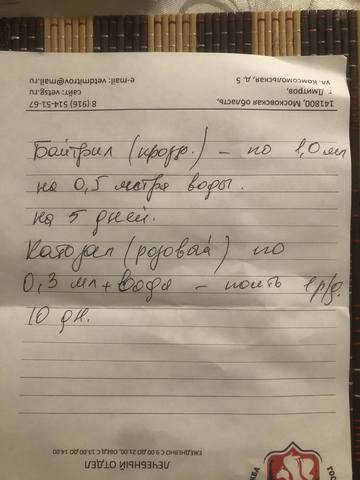 Байтрил (прозр.) – по 1,0 мл
на 0,5 литра воды.
на 5 дней.
Катозал (розовый) по
0,3 мл + вода – поить 1 р/д.
10 дн.
141800, Московская область,
г. Дмитров,
ул. Комсомольская, д. 5
8 (916) 514-51-67
сайт: vetsg.ru
e-mail: vetdmitrov@mail.ru
ЛЕЧЕБНЫЙ ОТДЕЛ
ЕЖЕДНЕВНО С 9.00 ДО 21.00, ОБЕД С 13.00 ДО 14.00